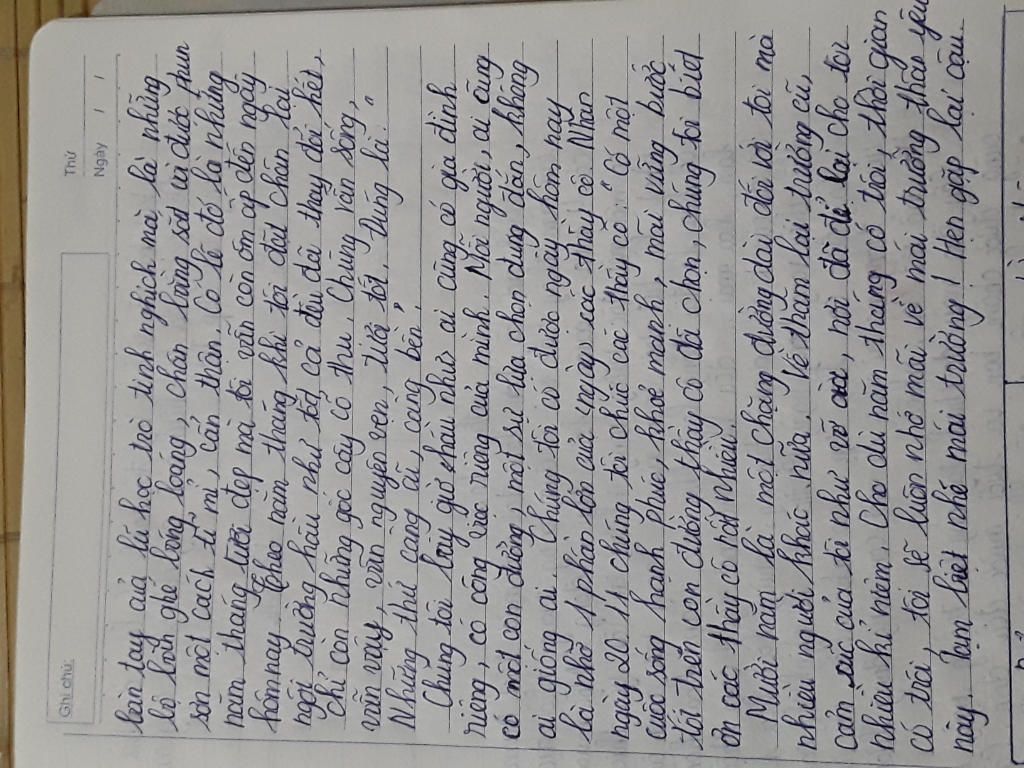 Thứ
Ngày / /
Ghi chú:
bàn tay của lũ học trò tinh nghịch mà là những
bộ bàn ghế bóng loáng, chân bằng sắt lại được phun
sơn một cách tỉ mỉ, cẩn thận. Có lẽ đó là những
năm tháng tươi đẹp mà tôi vẫn còn ôn ấp đến ngày
hôm nay. Theo năm tháng khi tôi đặt chân lại
ngôi trường hầu như tất cả đều đã thay đổi hết,
chỉ còn những gốc cây cổ thụ chúng vẫn sống,
vẫn vậy, vẫn nguyên vẹn, tươi tốt. Đúng là: "
Những thứ càng cũ, càng bền"
Chúng tôi bây giờ hầu như ai cũng có gia đình
riêng, có công việc riêng của mình. Mỗi người, ai cũng
có một con đường, một sự lựa chọn đúng đắn, không
ai giống ai. Chúng tôi có được ngày hôm nay
là nhờ 1 phần lớn của các thầy cô. Nhân
ngày 20 11 chúng tôi chúc các thầy cô " Có một
cuộc sống hạnh phúc, khoẻ mạnh, mãi vững bước
tốt trên con đường thầy cô đã chọn, chúng tôi biết
ơn các thầy cô rất nhiều.
Mười năm là một chặng đường dài đối với tôi mà
nhiều người khác nữa. Về thăm lại trường cũ,
cảm xúc của tôi như vỡ oà, nơi đã để lại cho tôi
nhiều kỉ niệm. Cho dù năm tháng có trôi, thời gian
có trôi, tôi sẽ luôn nhớ mãi về mái trường thân yêu
này. Tạm biệt nhé mái trường! Hẹn gặp lại cậu.